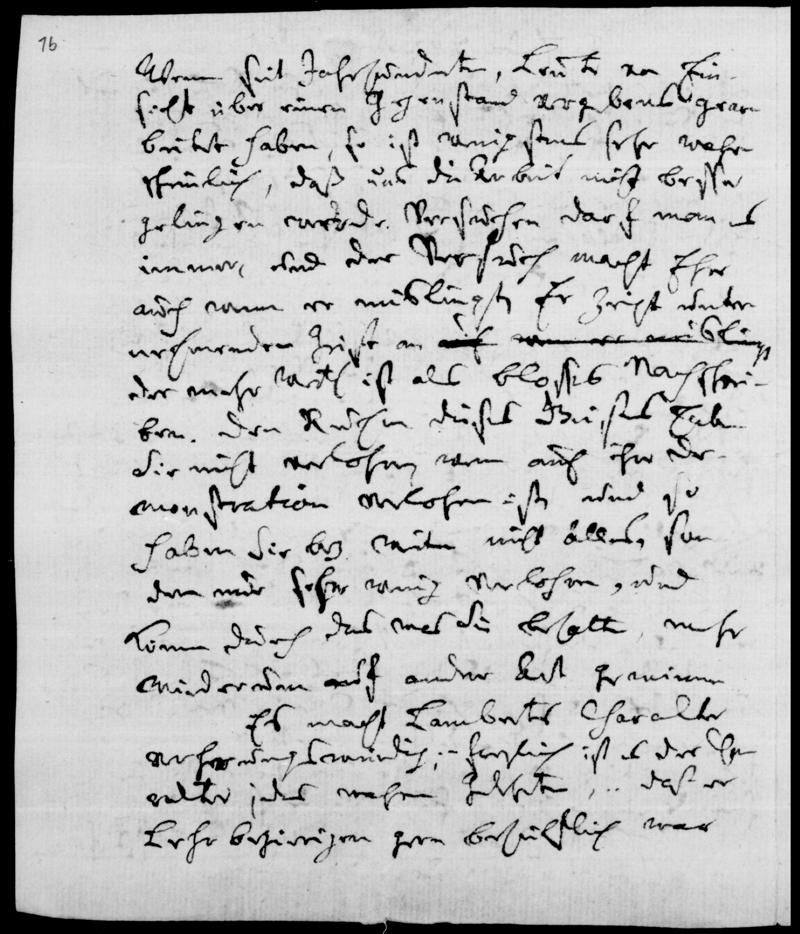 16
Wenn seit Jahrhunderten, Leute von Ein
sicht über einen Gegenstand vergebens gear
beitet haben, so ist wenigstens sehr wahr
scheinlich, daß uns die Arbeit nicht besser
gelingen werde. Versuchen darf man es
immer, und der Versuch macht Ehre
auch wenn er mislingt, Er zeigt unter
nehmenden Geist an auch wenn er mislingt
der mehr werth ist als blosses Nachschrei-
ben. Den Ruhm dieses Geistes haben
Sie nicht verlohren, wenn auch ihre De-
monstration verlohren ist, und so
haben Sie bey weitem nicht alles, son
dern nur sehr wenig verlohren, und
können durch das was Sie behalten, mehr
wiederum auf andre Art gewinnen
Es macht Lamberts Charakter
verehrungswürdig, freylich ist es der Cha
rakter jedes wahren Gelehrten, .. daß er
Lehrbegierigen gern behülflich war